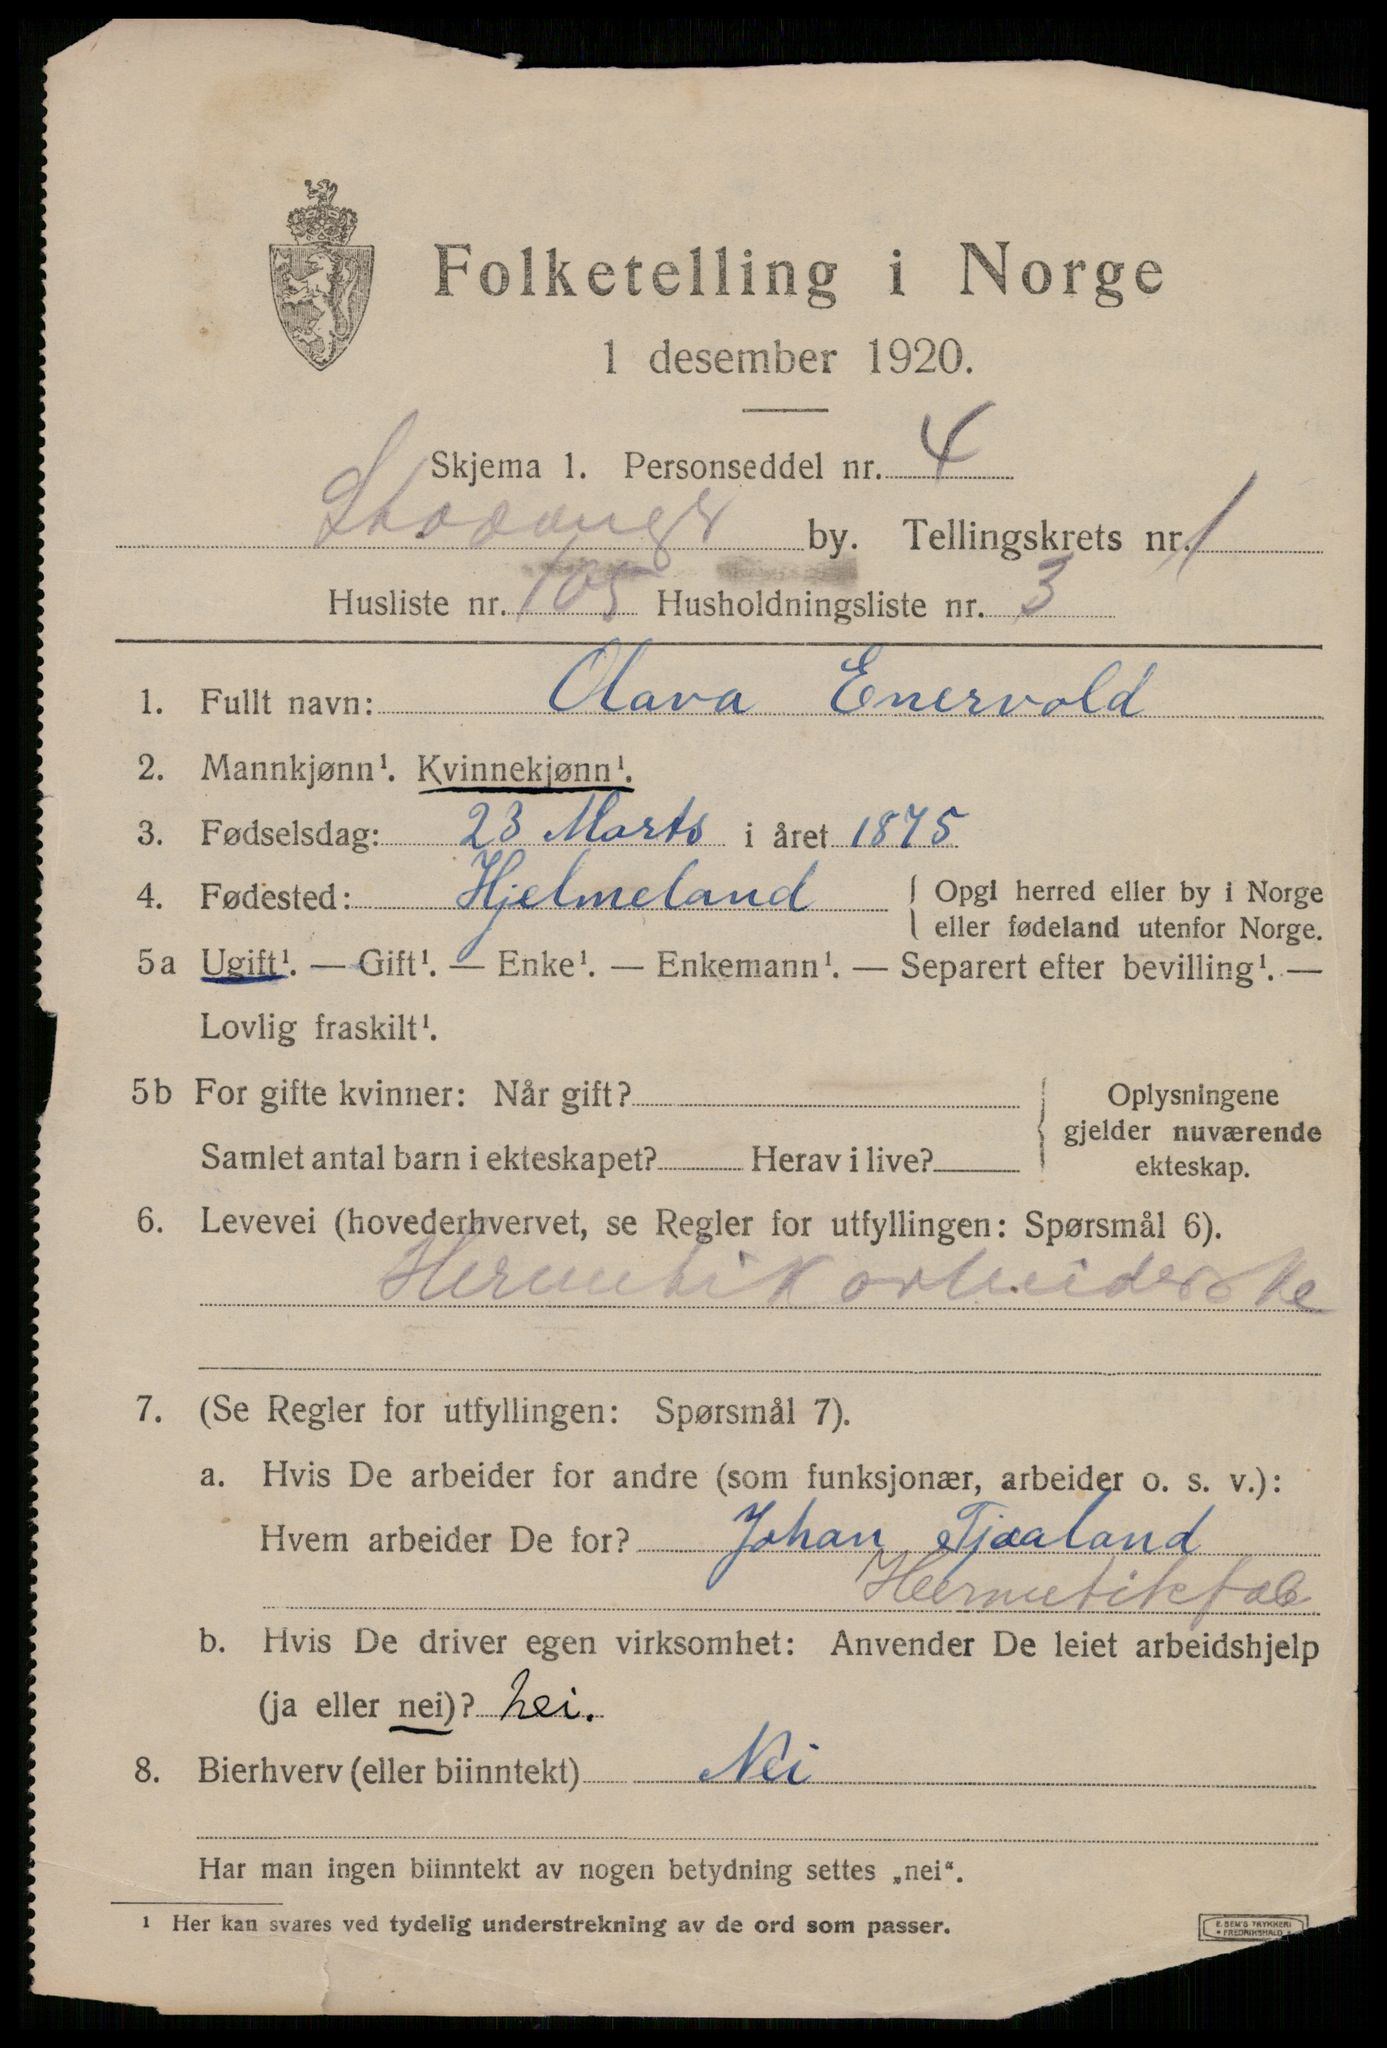 Folketelling i Norge
1 desember 1920.
Skjema 1. Personseddel nr. 4
Stavanger by. Tellingskrets nr. 1
Husliste nr. 105 Husholdningsliste nr. 3
1. Fullt navn: Olava Enervold
2. Mannkjønn¹. Kvinnekjønn¹.
3. Fødselsdag: 23 Marts i året 1875
4. Fødested: Hjelmeland { Opgi herred eller by i Norge
eller fødeland utenfor Norge.
5a Ugift¹. — Gift¹. — Enke¹. — Enkemann¹. — Separert efter bevilling¹. —
Lovlig fraskilt¹.
5b For gifte kvinner: Når gift? { Oplysningene
gjelder nuværende
Samlet antal barn i ekteskapet? Herav i live?
ekteskap.
6. Levevei (hovederhvervet, se Regler for utfyllingen: Spørsmål 6).
Hermetikarbeiderske
7. (Se Regler for utfyllingen: Spørsmål 7).
a. Hvis De arbeider for andre (som funksjonær, arbeider o. s. v.):
Hvem arbeider De for? Johan Tjaaland
Hermetikfab
b. Hvis De driver egen virksomhet: Anvender De leiet arbeidshjelp
(ja eller nei)? nei.
8. Bierhverv (eller biinntekt) Nei
Har man ingen biinntekt av nogen betydning settes „nei“.
¹ Her kan svares ved tydelig understrekning av de ord som passer.
E. SEM'S TRYKKERI
• FREDRIKSHALD •